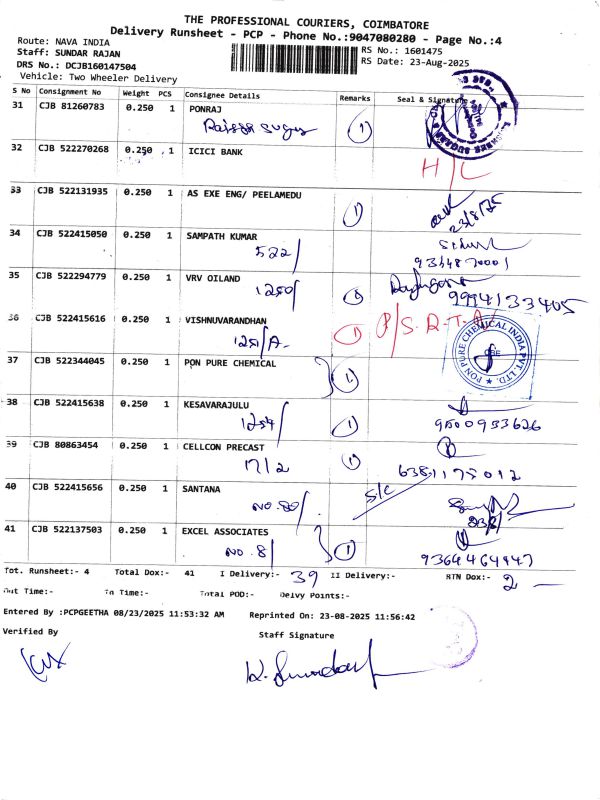 THE PROFESSIONAL COURIERS, COIMBATORE
Delivery Runsheet - PCP - Phone No.:9047080280 - Page No.:4
Route: NAVA INDIA
Staff: SUNDAR RAJAN
DRS No.: DCJB160147504
Vehicle: Two Wheeler Delivery
RS No.: 1601475
RS Date: 23-Aug-2025
S No Consignment No Weight PCS Consignee Details Remarks Seal & Signature
31 CJB 81260783 0.250 1 PONRAJ
1
32 CJB 522270268 0.250 1 ICICI BANK
H/L
33 CJB 522131935 0.250 1 AS EXE ENG/ PEELAMEDU
1 23/8/25
34 CJB 522415050 0.250 1 SAMPATH KUMAR
522/
35 CJB 522294779 0.250 1 VRV OILAND
1250/ 1 9994133405
36 CJB 522415616 0.250 1 VISHNUVARANDHAN
1251/A- 1
37 CJB 522344045 0.250 1 PON PURE CHEMICAL
1 PON PURE CHEMICAL INDIA PVT. LTD. CBE
38 CJB 522415638 0.250 1 KESAVARAJULU
1254/ 1 9500933626
39 CJB 80863454 0.250 1 CELLCON PRECAST
17/2 1 6381175012
40 CJB 522415656 0.250 1 SANTANA
NO. 80/ S/C
41 CJB 522137503 0.250 1 EXCEL ASSOCIATES
NO. 8/ 1 9364464947
Tot. Runsheet:- 4 Total Dox:- 41 I Delivery:- 39 II Delivery:- RTN Dox:- 2
Out Time:- In Time:- Total POD:- Delvy Points:-
Entered By :PCPGEETHA 08/23/2025 11:53:32 AM Reprinted On: 23-08-2025 11:56:42
Verified By Staff Signature